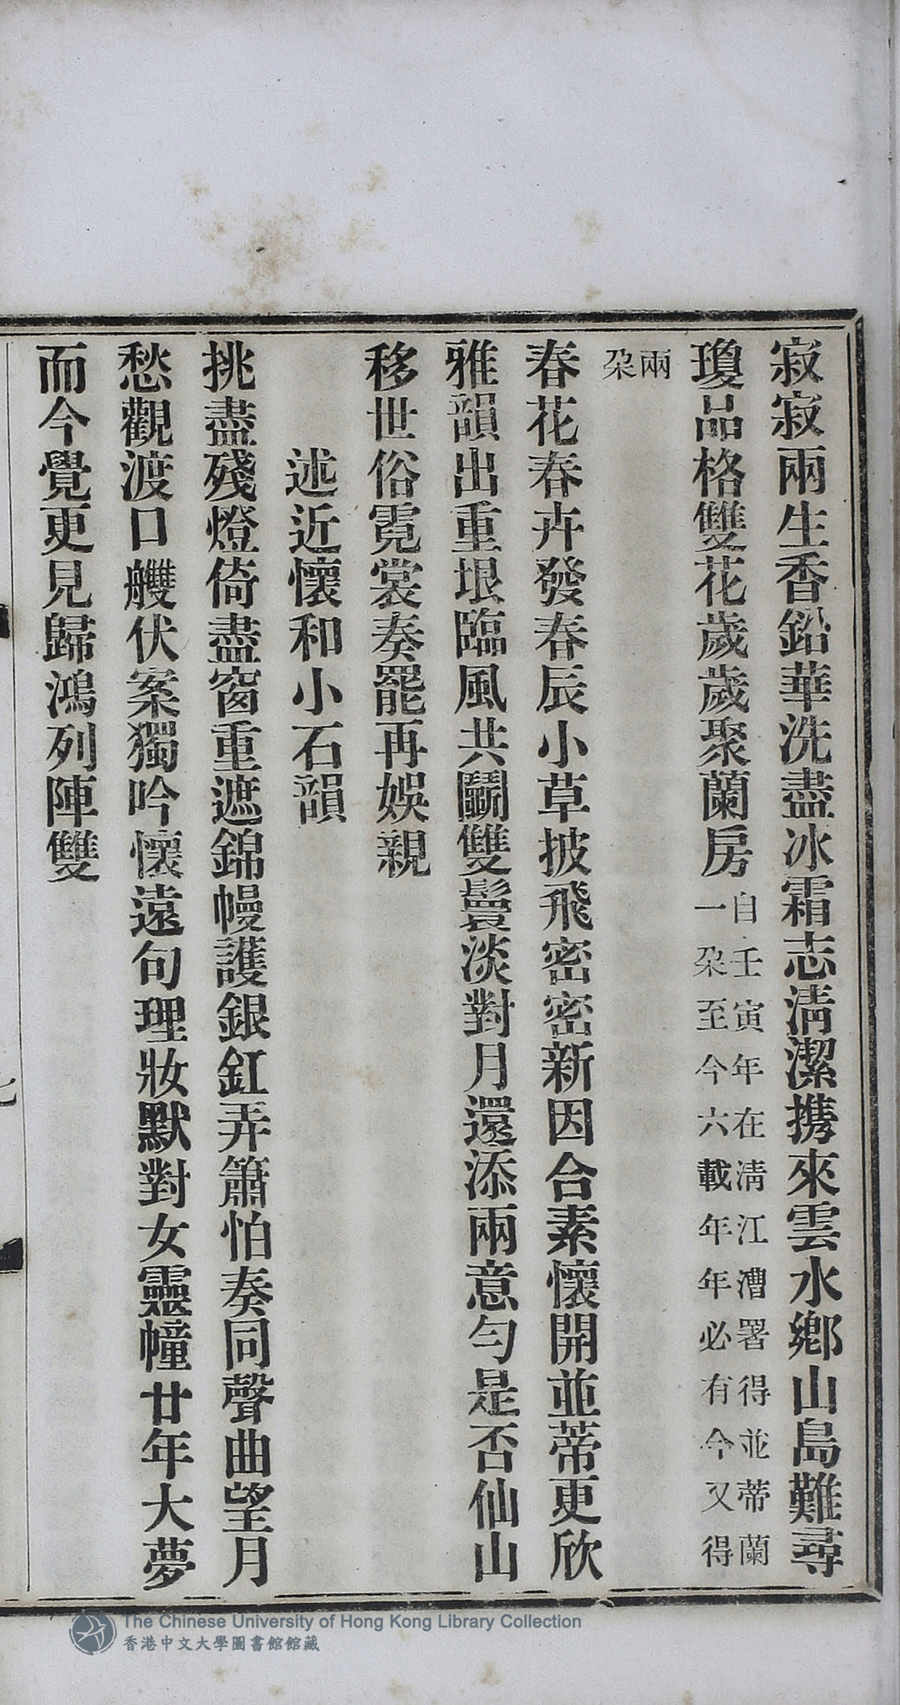 寂寂兩生香鉛華洗盡冰霜志淸潔攜來雲水鄉山島難尋
瓊品格雙花歲歲聚蘭房自壬寅年在淸江漕署得並蒂蘭一朶至今六載年年必有今又得
兩朶
春花春卉發春辰小草披飛密密新因合素懷開並蒂更欣
雅韻出重垠臨風共鬬雙鬟淡對月還添兩意勻是否仙山
移世俗霓裳奏罷再娛親
述近懷和小石韻
挑盡殘燈倚盡窗重遮錦幔護銀釭弄簫怕奏同聲曲望月
愁觀渡口艭伏案獨吟懷遠句理妝默對女靈幢廿年大夢
而今覺更見歸鴻列陣雙
The Chinese University of Hong Kong Library Collection
香港中文大學圖書館館藏